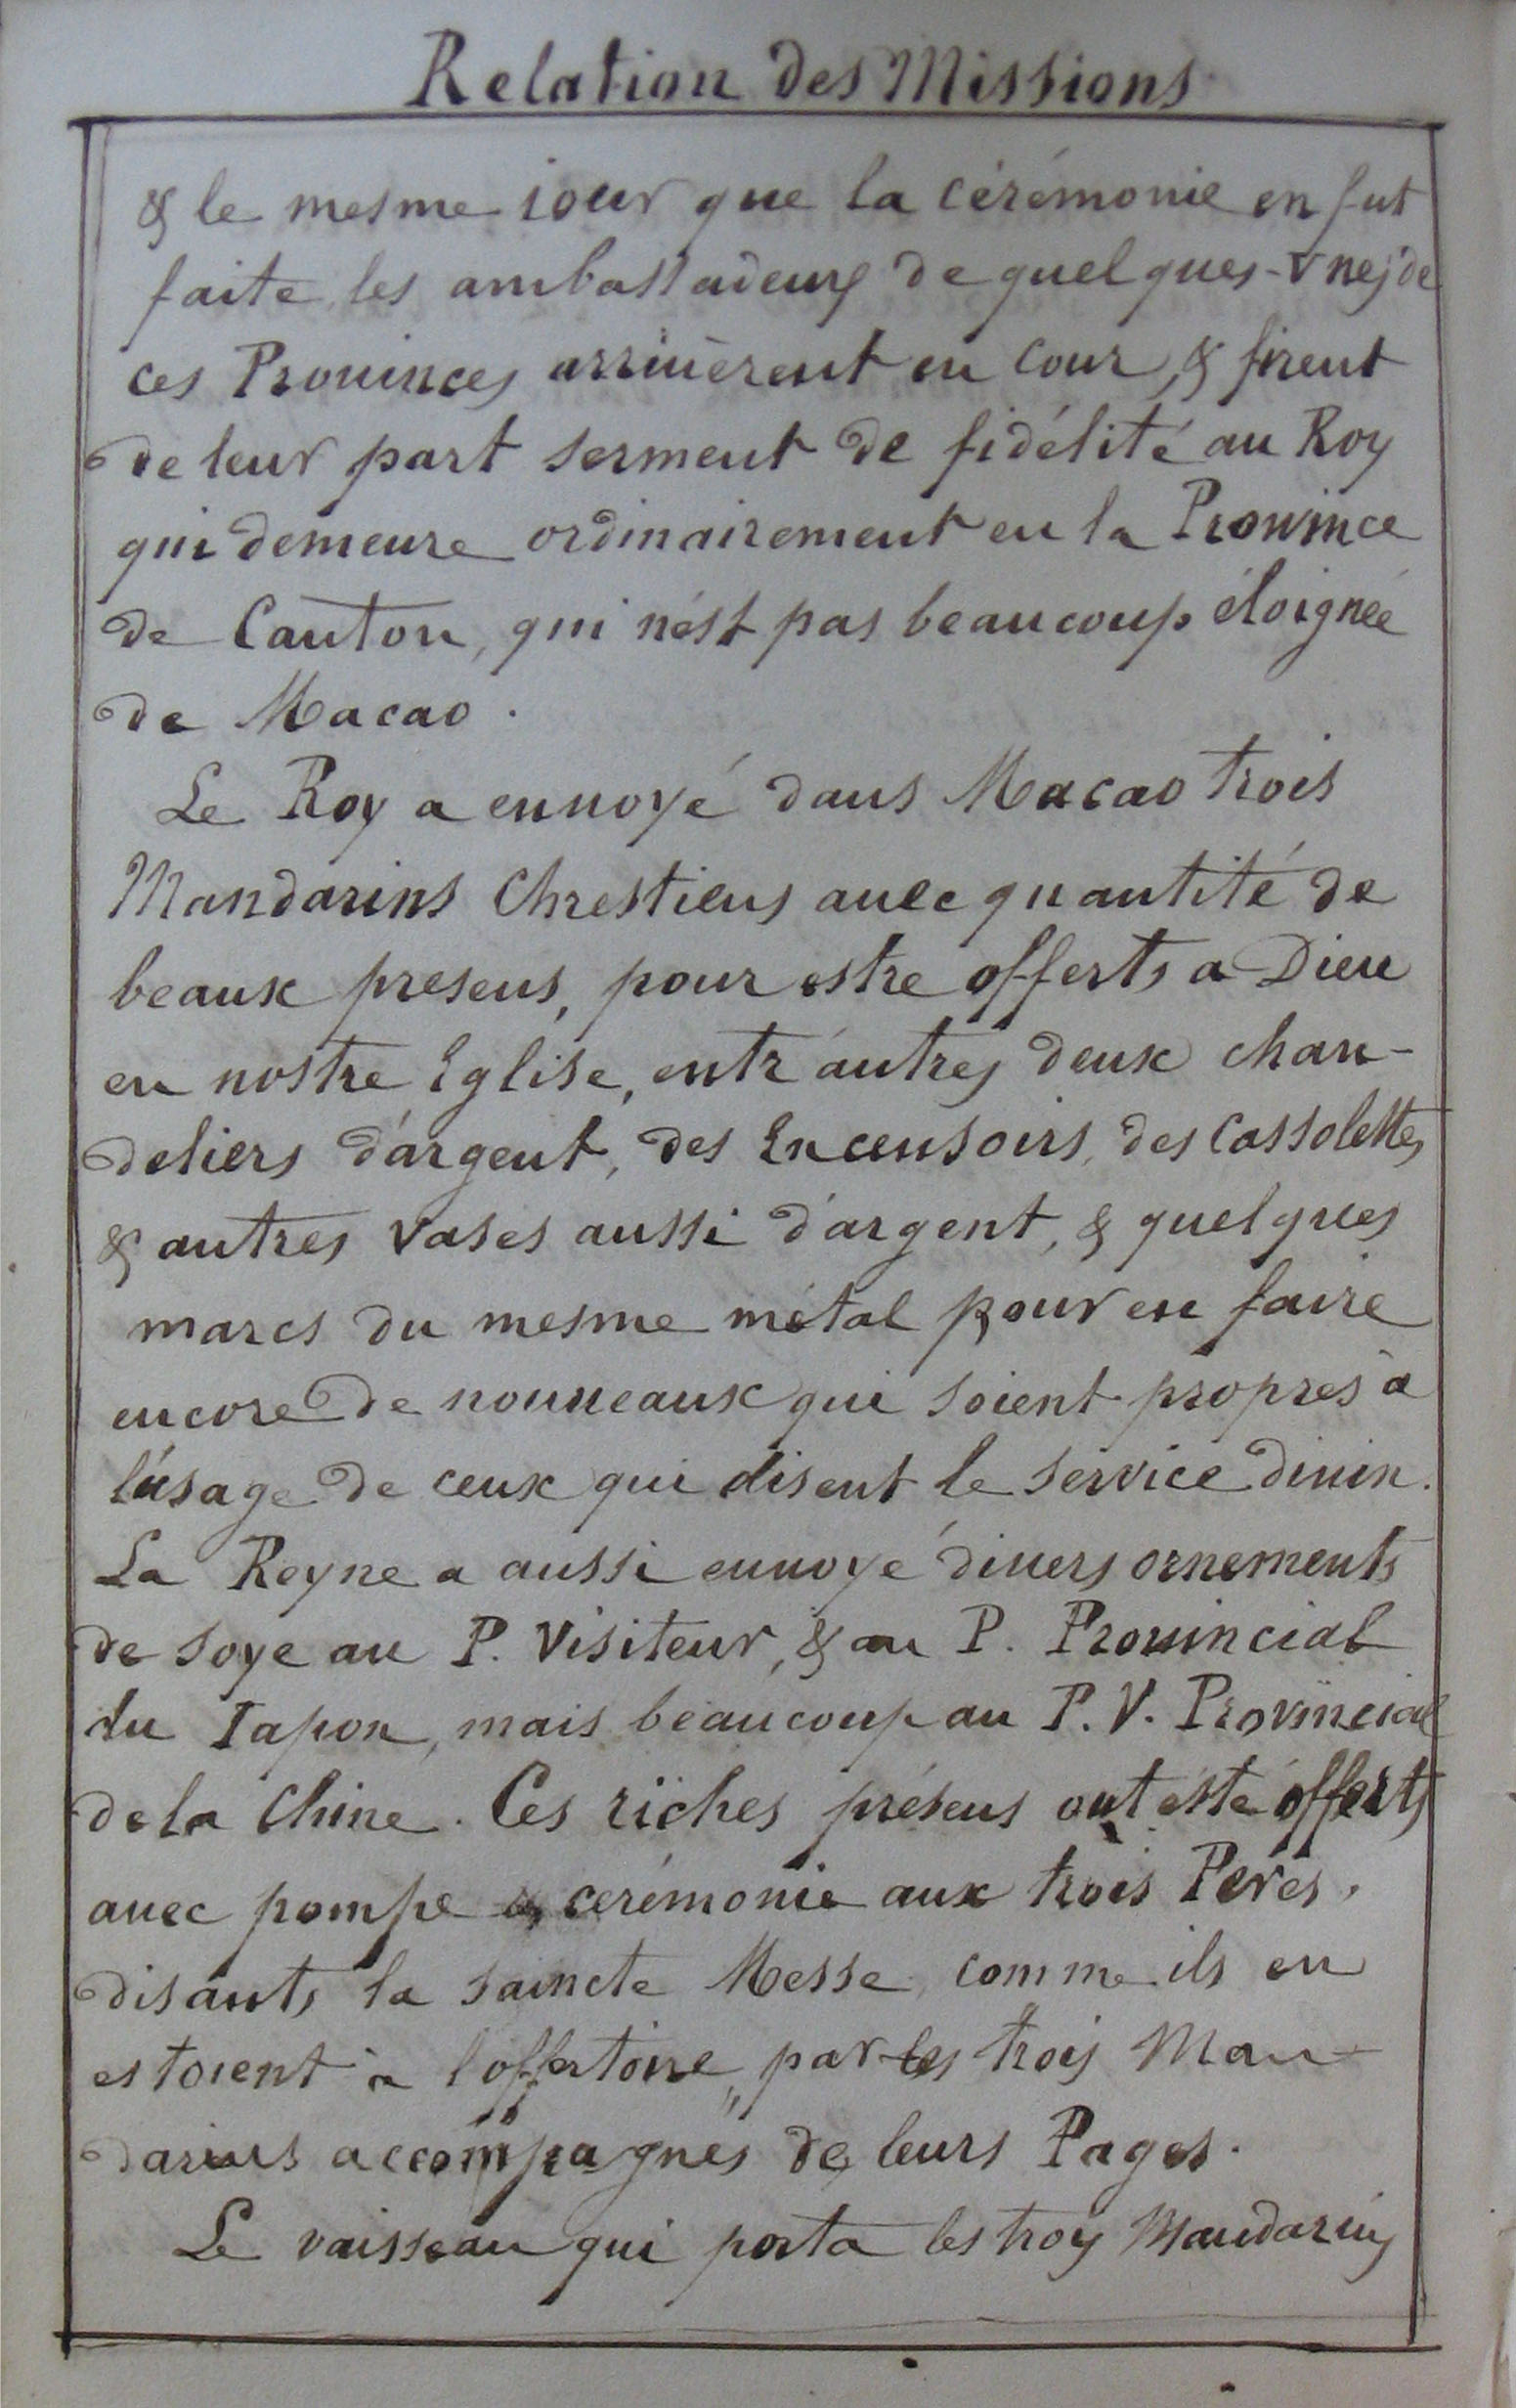 Relation des Missions
& le mesme iour que la cérémonie en fut
faite, les ambassadeurs de quelques-vnes de
ces Prouinces arriuèrent en Cour, & firent
de leur part serment de fidélité au Roy
qui demeure ordinairement en la Prouince
de Canton, qui n'est pas beaucoup éloignée
de Macao.
Le Roy a enuoyé dans Macao trois
Mandarins Chrestiens auec quantité de
beaux presens, pour estre offerts a Dieu
en nostre Eglise, entr'autres deux chan-
deliers d'argent, des Encensoirs, des Cassolettes
& autres vases aussi d'argent, & quelques
marcs du mesme métal pour en faire
encore de nouueaux qui soient propres à
l'usage de ceux qui disent le service diuin.
La Reyne a aussi enuoyé diuers ornements
de soye au P. Visiteur, & au P. Prouincial
du Iapon, mais beaucoup au P. V. Provincial
de la Chine. Ces riches présens ont esté offerts
auec pompe & cerémonie aux trois Peres,
disants la saincte Messe, comme ils en
estoient à l'offertoire, par les trois Man-
darins accompagnés de leurs Pages.
Le vaisseau qui porta les troys Mandarins